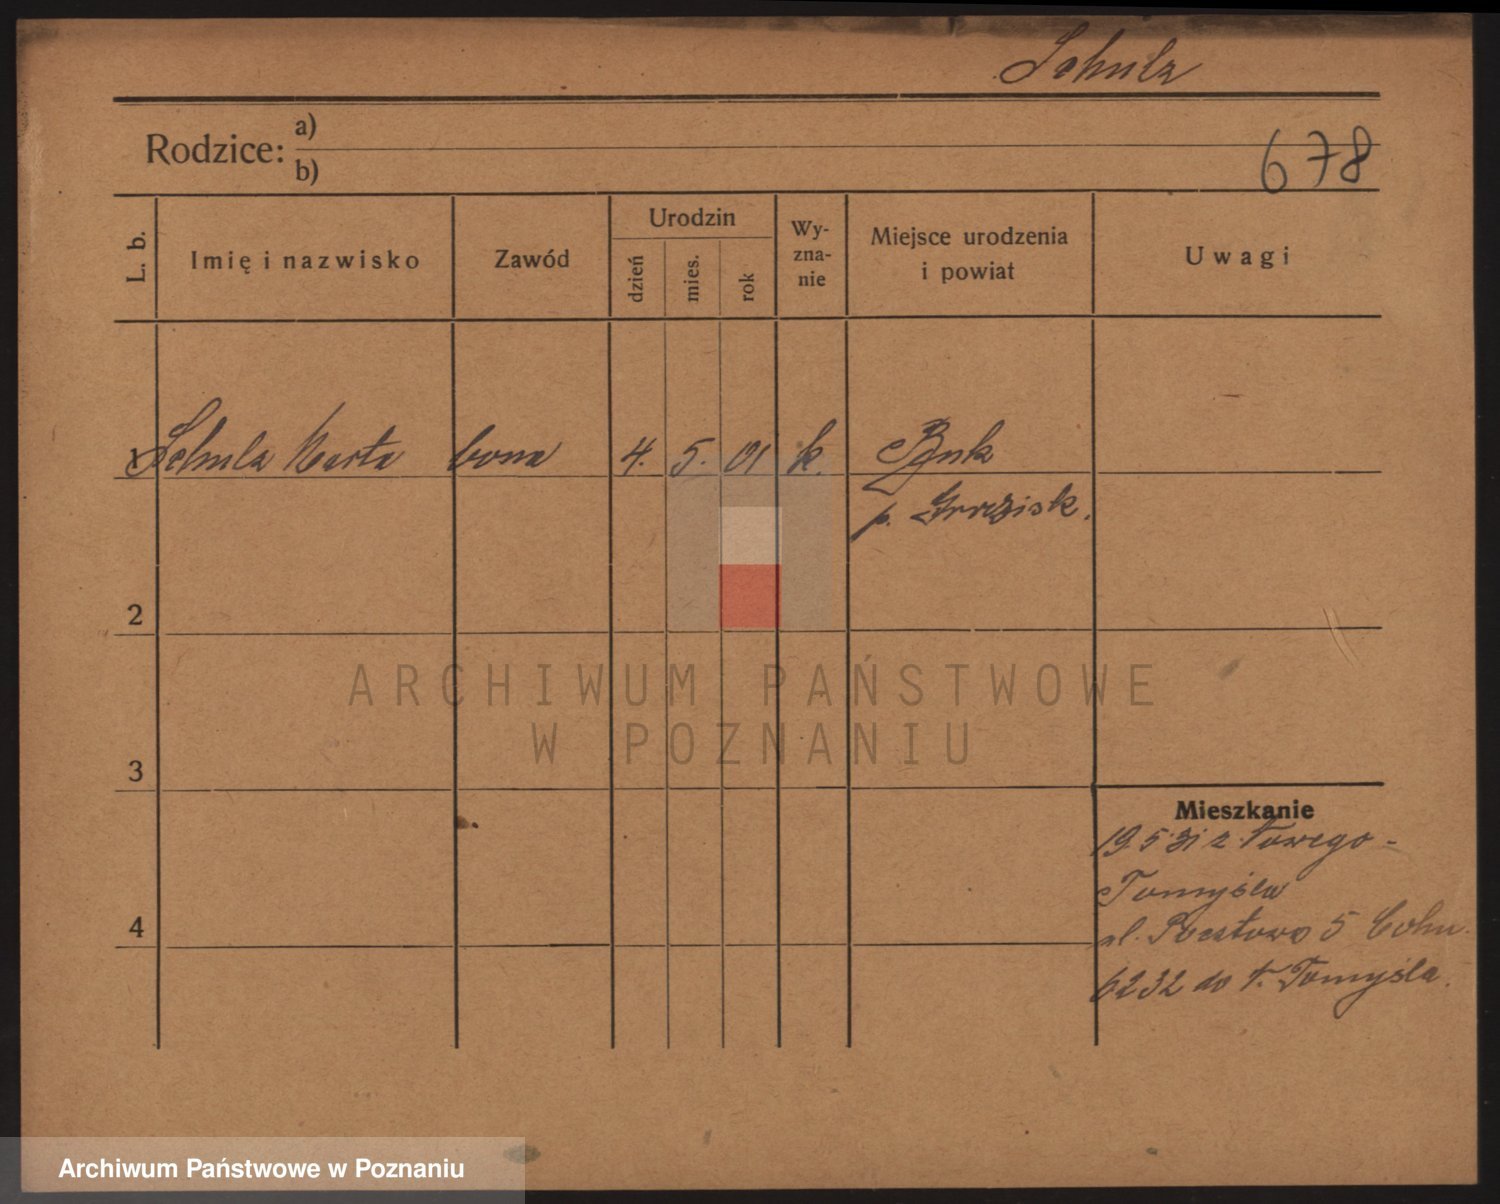 Schulz
Rodzice: a)
b)
678
L. b.
Imię i nazwisko
Zawód
Urodzin
dzień
mies.
rok
Wy-
zna-
nie
Miejsce urodzenia
i powiat
Uwagi
1 Schulz Marta bona 4. 5. 01 k. Buk
p. Grodzisk.
2
ARCHIWUM PAŃSTWOWE
W POZNANIU
3
Mieszkanie
19 5 31 z Nowego-
Tomyśla
ul. Pocztowa 5 Cohn.
6 2 32 do N. Tomyśla.
4
Archiwum Państwowe w Poznaniu